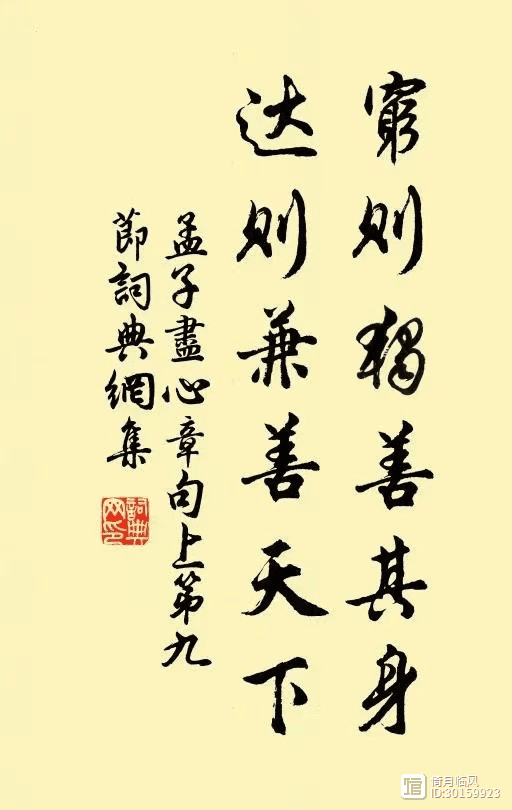 窮则獨善其身
达则兼善天下
孟子盡心章句上第九
節詞典網集
詞典
网印
荷月临风
ID:30159923